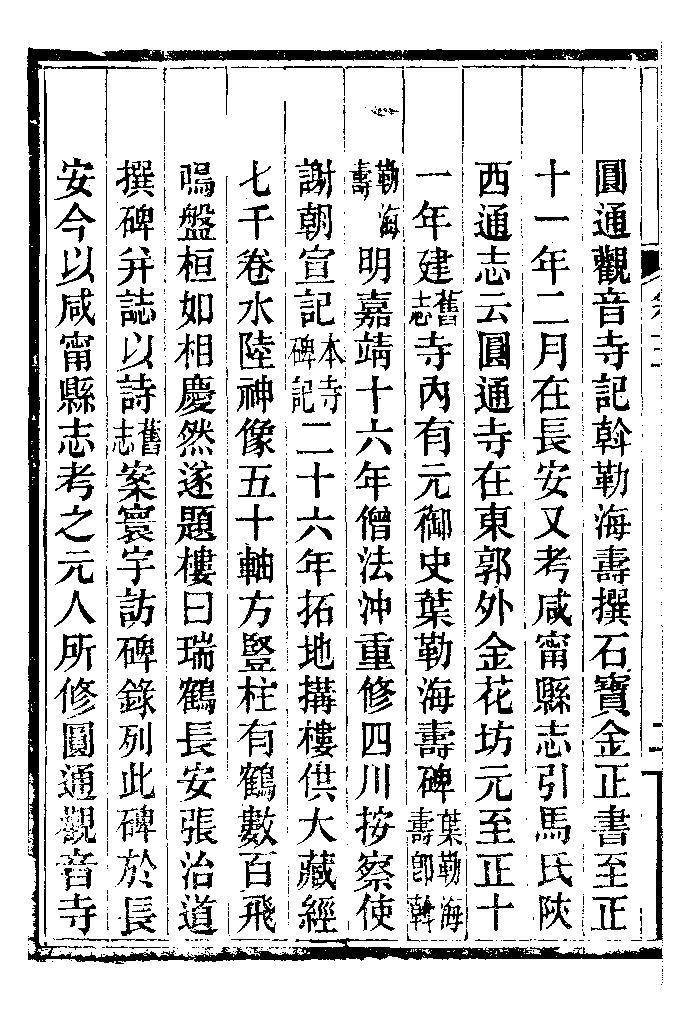 圓通觀音寺記斡勒海壽撰石寶金正書至正
十一年二月在長安又考咸甯縣志引馬氏陝
西通志云圓通寺在東郭外金花坊元至正十
一年建舊志寺內有元御史葉勒海壽碑葉勒海壽卽斡
勒海壽明嘉靖十六年僧法沖重修四川按察使
謝朝宣記本寺碑記二十六年拓地搆樓供大藏經
七千卷水陸神像五十軸方豎柱有鶴數百飛
鳴盤桓如相慶然遂題樓曰瑞鶴長安張治道
撰碑并誌以詩舊志案寰宇訪碑錄列此碑於長
安今以咸甯縣志考之元人所修圓通觀音寺